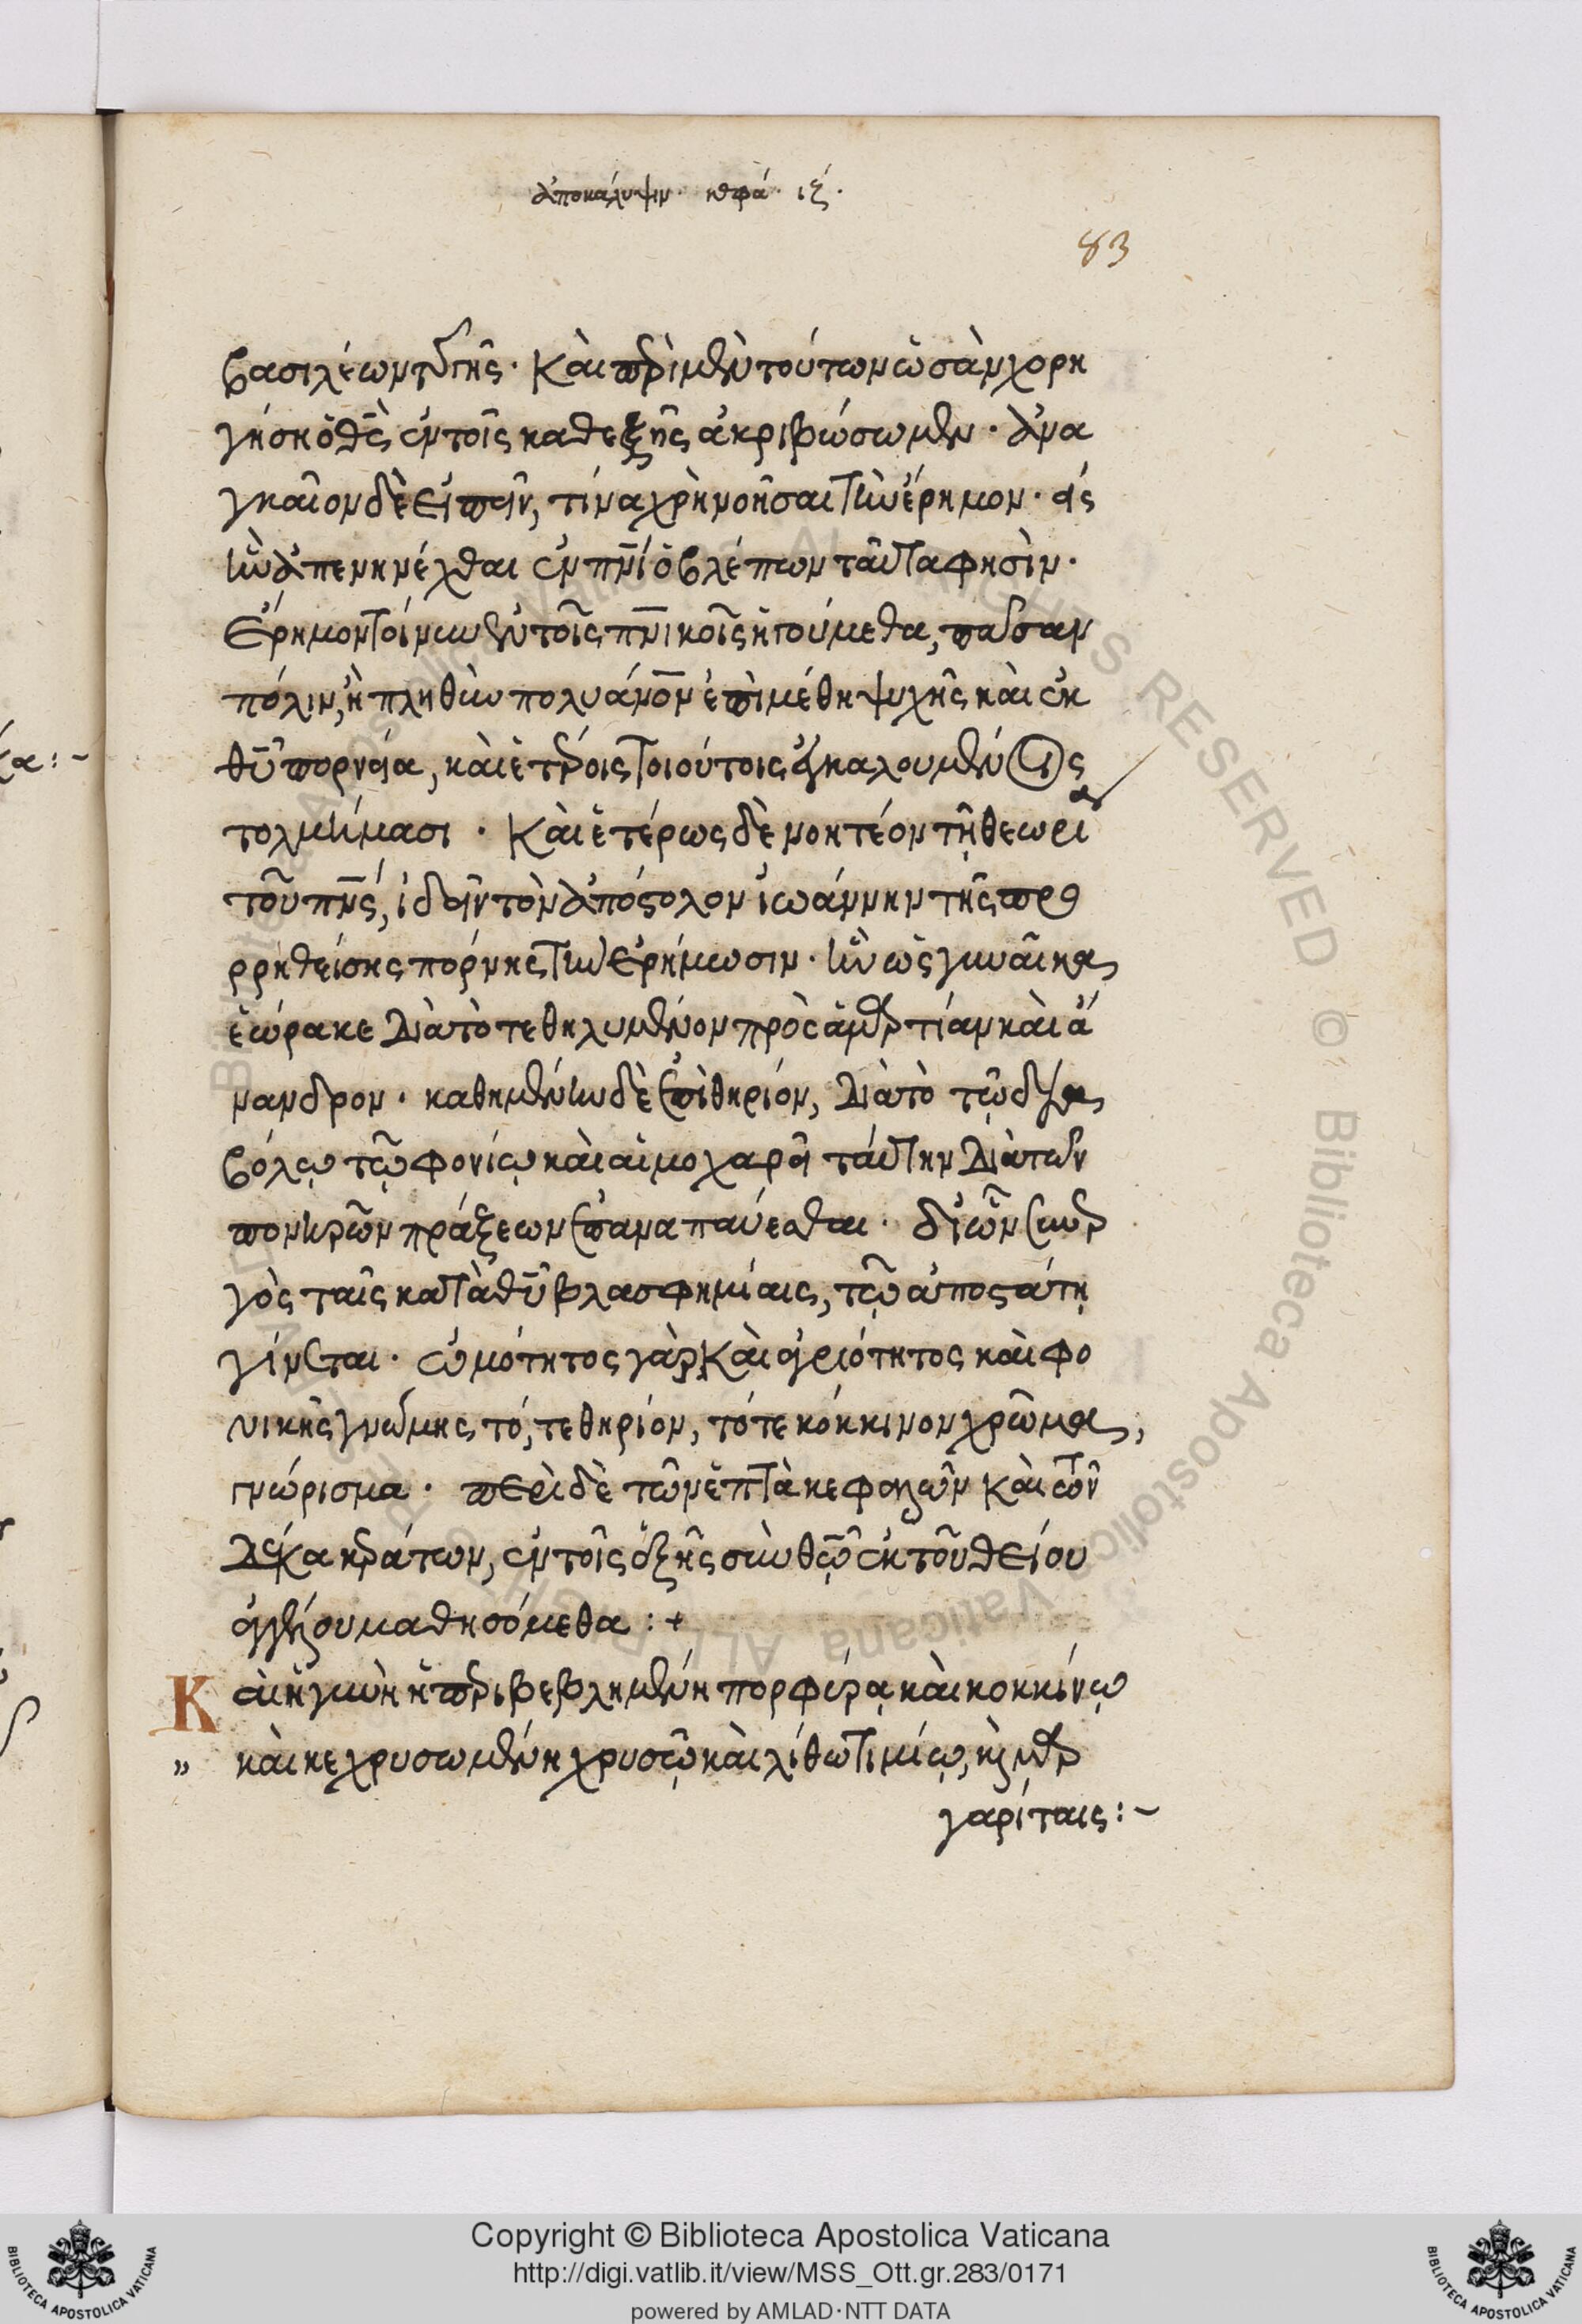 ἀποκάλυψιν· κεφά· ιζ·
83
βασιλέων τῆς γῆς· Καὶ περὶ μὲν τούτων ὡς ἂν χορη
γήσῃ ὁ θς̄ ἐν τοῖς καθεξῆς ἀκριβώσωμεν· ἀνα
γκαῖον δὲ εἰπεῖν, τίνα χρὴ νοῆσαι τὴν ἔρημον· εἰς
ἣν ἀπενηνέχθαι ἐν πνῑ ὁ βλέπων ταῦτα φησὶν·
Ἔρημον τοίνυν ἐν τοῖς πνῑκοῖς ἡγούμεθα, πᾶσαν
πόλιν, ἢ πληθὺν πολυάνο̄ν ἐπὶ μέθῃ ψυχῆς καὶ ἐκ
θῡ πορνεία, καὶ ἑτέροις τοιούτοις ἐγκαλουμένοις
τολμήμασι · Καὶ ἑτέρως δὲ νοητέον τῇ θεωρίᾳ
τοῦ πνς̄, ἰδεῖν τὸν ἀπόστολον ἰωάννην τῆς προ
ρρηθείσης πόρνης τὴν ἐρήμωσιν· ἣν ὡς γυναῖκα
ἑώρακε διὰ τὸ τεθηλυμένον πρὸς ἁμαρτίαν καὶ ἄ
νανδρον· καθημένην δὲ ἐπὶ θηρίον, διὰ τὸ τῷ δια
βόλῳ τῷ φονίῳ καὶ αἱμοχαρεῖ ταύτην διὰ τῶν
πονηρῶν πράξεων ἐπαναπαύεσθαι· δι' ὧν συνερ
γὸς ταῖς κατὰ θῡ βλασφημίαις, τῷ ἀποστάτῃ
γίνεται· ὠμότητος γὰρ καὶ ἀγριότητος καὶ φο
νικῆς γνώμης τό, τε θηρίον, τότε κόκκινον χρῶμα,
γνώρισμα· περὶ δὲ τῶν ἑπτὰ κεφαλῶν καὶ τῶν
δέκα κεράτων, ἐν τοῖς ἑξῆς σὺν θῷ ἐκ τοῦ θείου
ἀγγέλου μαθησόμεθα :+
Καὶ ἡ γυνὴ ἡ περιβεβλημένη πορφύρᾳ καὶ κοκκίνῳ
" καὶ κεχρυσωμένη χρυσῷ καὶ λίθω τιμίῳ, καὶ μαρ
γαρίταις :~
Copyright © Biblioteca Apostolica Vaticana
http://digi.vatlib.it/view/MSS_Ott.gr.283/0171
powered by AMLAD·NTT DATA